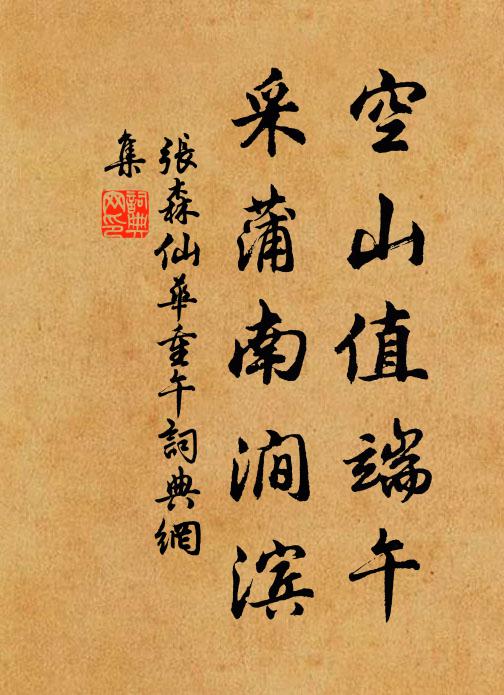 空山值端午
采蒲南涧滨
張森仙華重午詞典網
集
詞典
网印